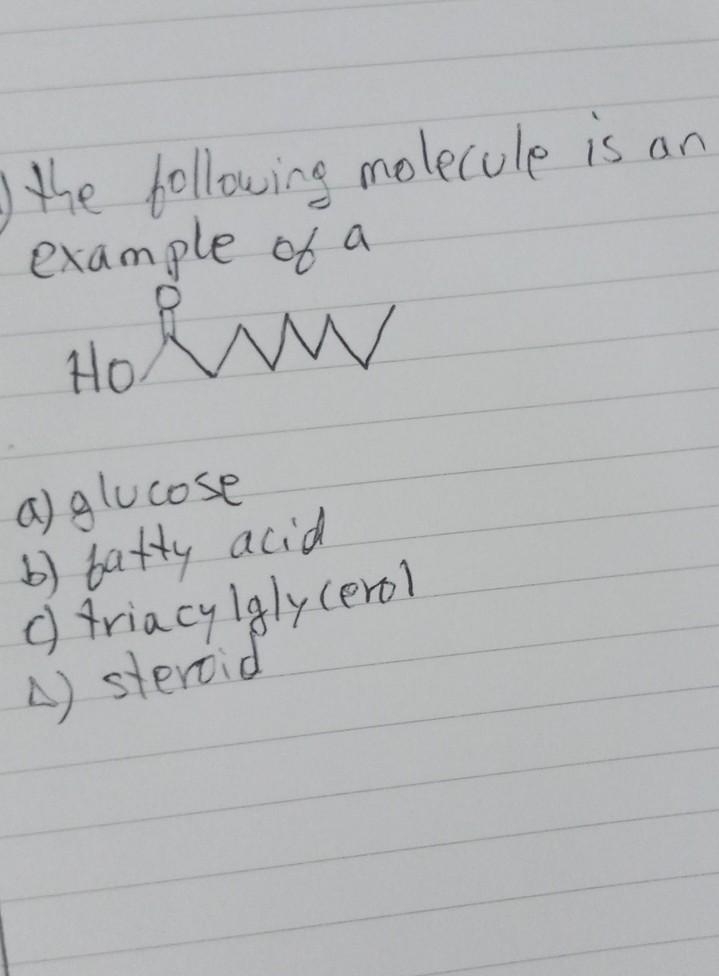 ) the following molecule is an
example of a
O
HO
a) glucose
b) fatty acid
c) triacylglycerol
D) steroid